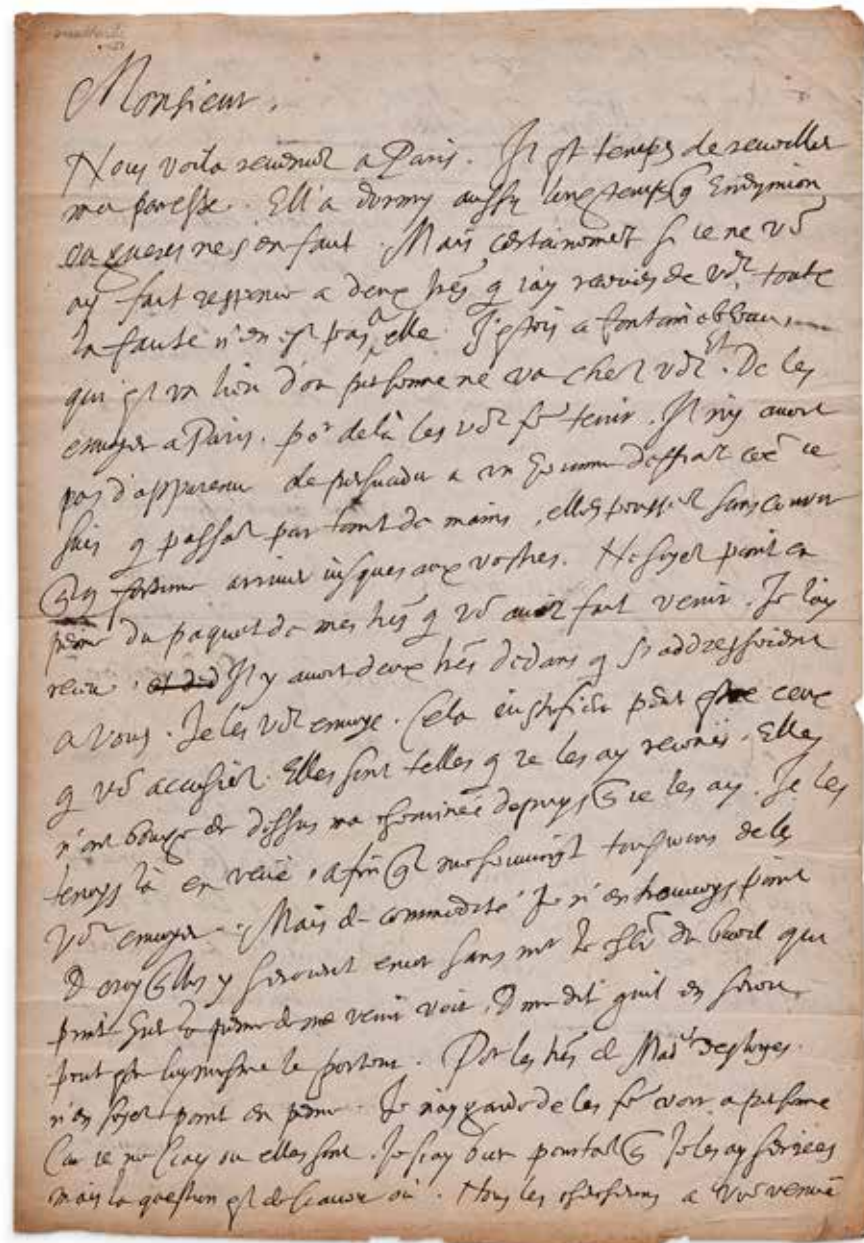 Monsieur.
Nous voila revenus a Paris. Il est temps de reveiller
ma paresse. Ell'a dormy aussy longtemps q Endymion
ou gueres ne s'en faut. Mais certainement si ie ne vo9
ay fait responce a deux lres q i'ay receues de vo9, toute
la faute n'en est pas a elle. J'estois a fontainebleau
qui est un lieu d'ou personne ne va chez vo9. De les
envoyer a Paris. por delà les vo9 fe tenir. Il n'y avoit
pas d'apparence de persuader a un homme deffiat coe ie
suis q passat par tant de mains, elles peussent sans
fortune arriver iusques aux vostres. Ne soyez point en
peine du paquet de mes lres q vo9 aviez fait venir. Je l'ay
receu. Il y avoit deux lres dedans q s'addressoient
a vous. Je les vo9 envoye. Cela iustifiera peut estre ceux
q vo9 accusiez. Elles sont telles q ie les ay receues. Elles
n'ont bougé de dessus ma cheminée depuys q ie les ay. Je les
tenoys là en veuë, afin q me souvinst tousiours de les
vo9 envoyer. Mais de commodité Je n'en trouvoys point
Et croy q'lles y seroient encor sans mr le du bueil qui
print hier la peine de me venir voir, & me dit qu'il en seroit
peut estre luy mesme le porteur. Por les lres de Made Desloges.
n'en soyez point en peine. Je n'ay garde de les fe voir a personne
Car ie ne sçay ou elles sont. Je sçay bien pourtat q Je les ay serrees
mais la question est de sçavoir où. Nous les chercherons a vre venuë